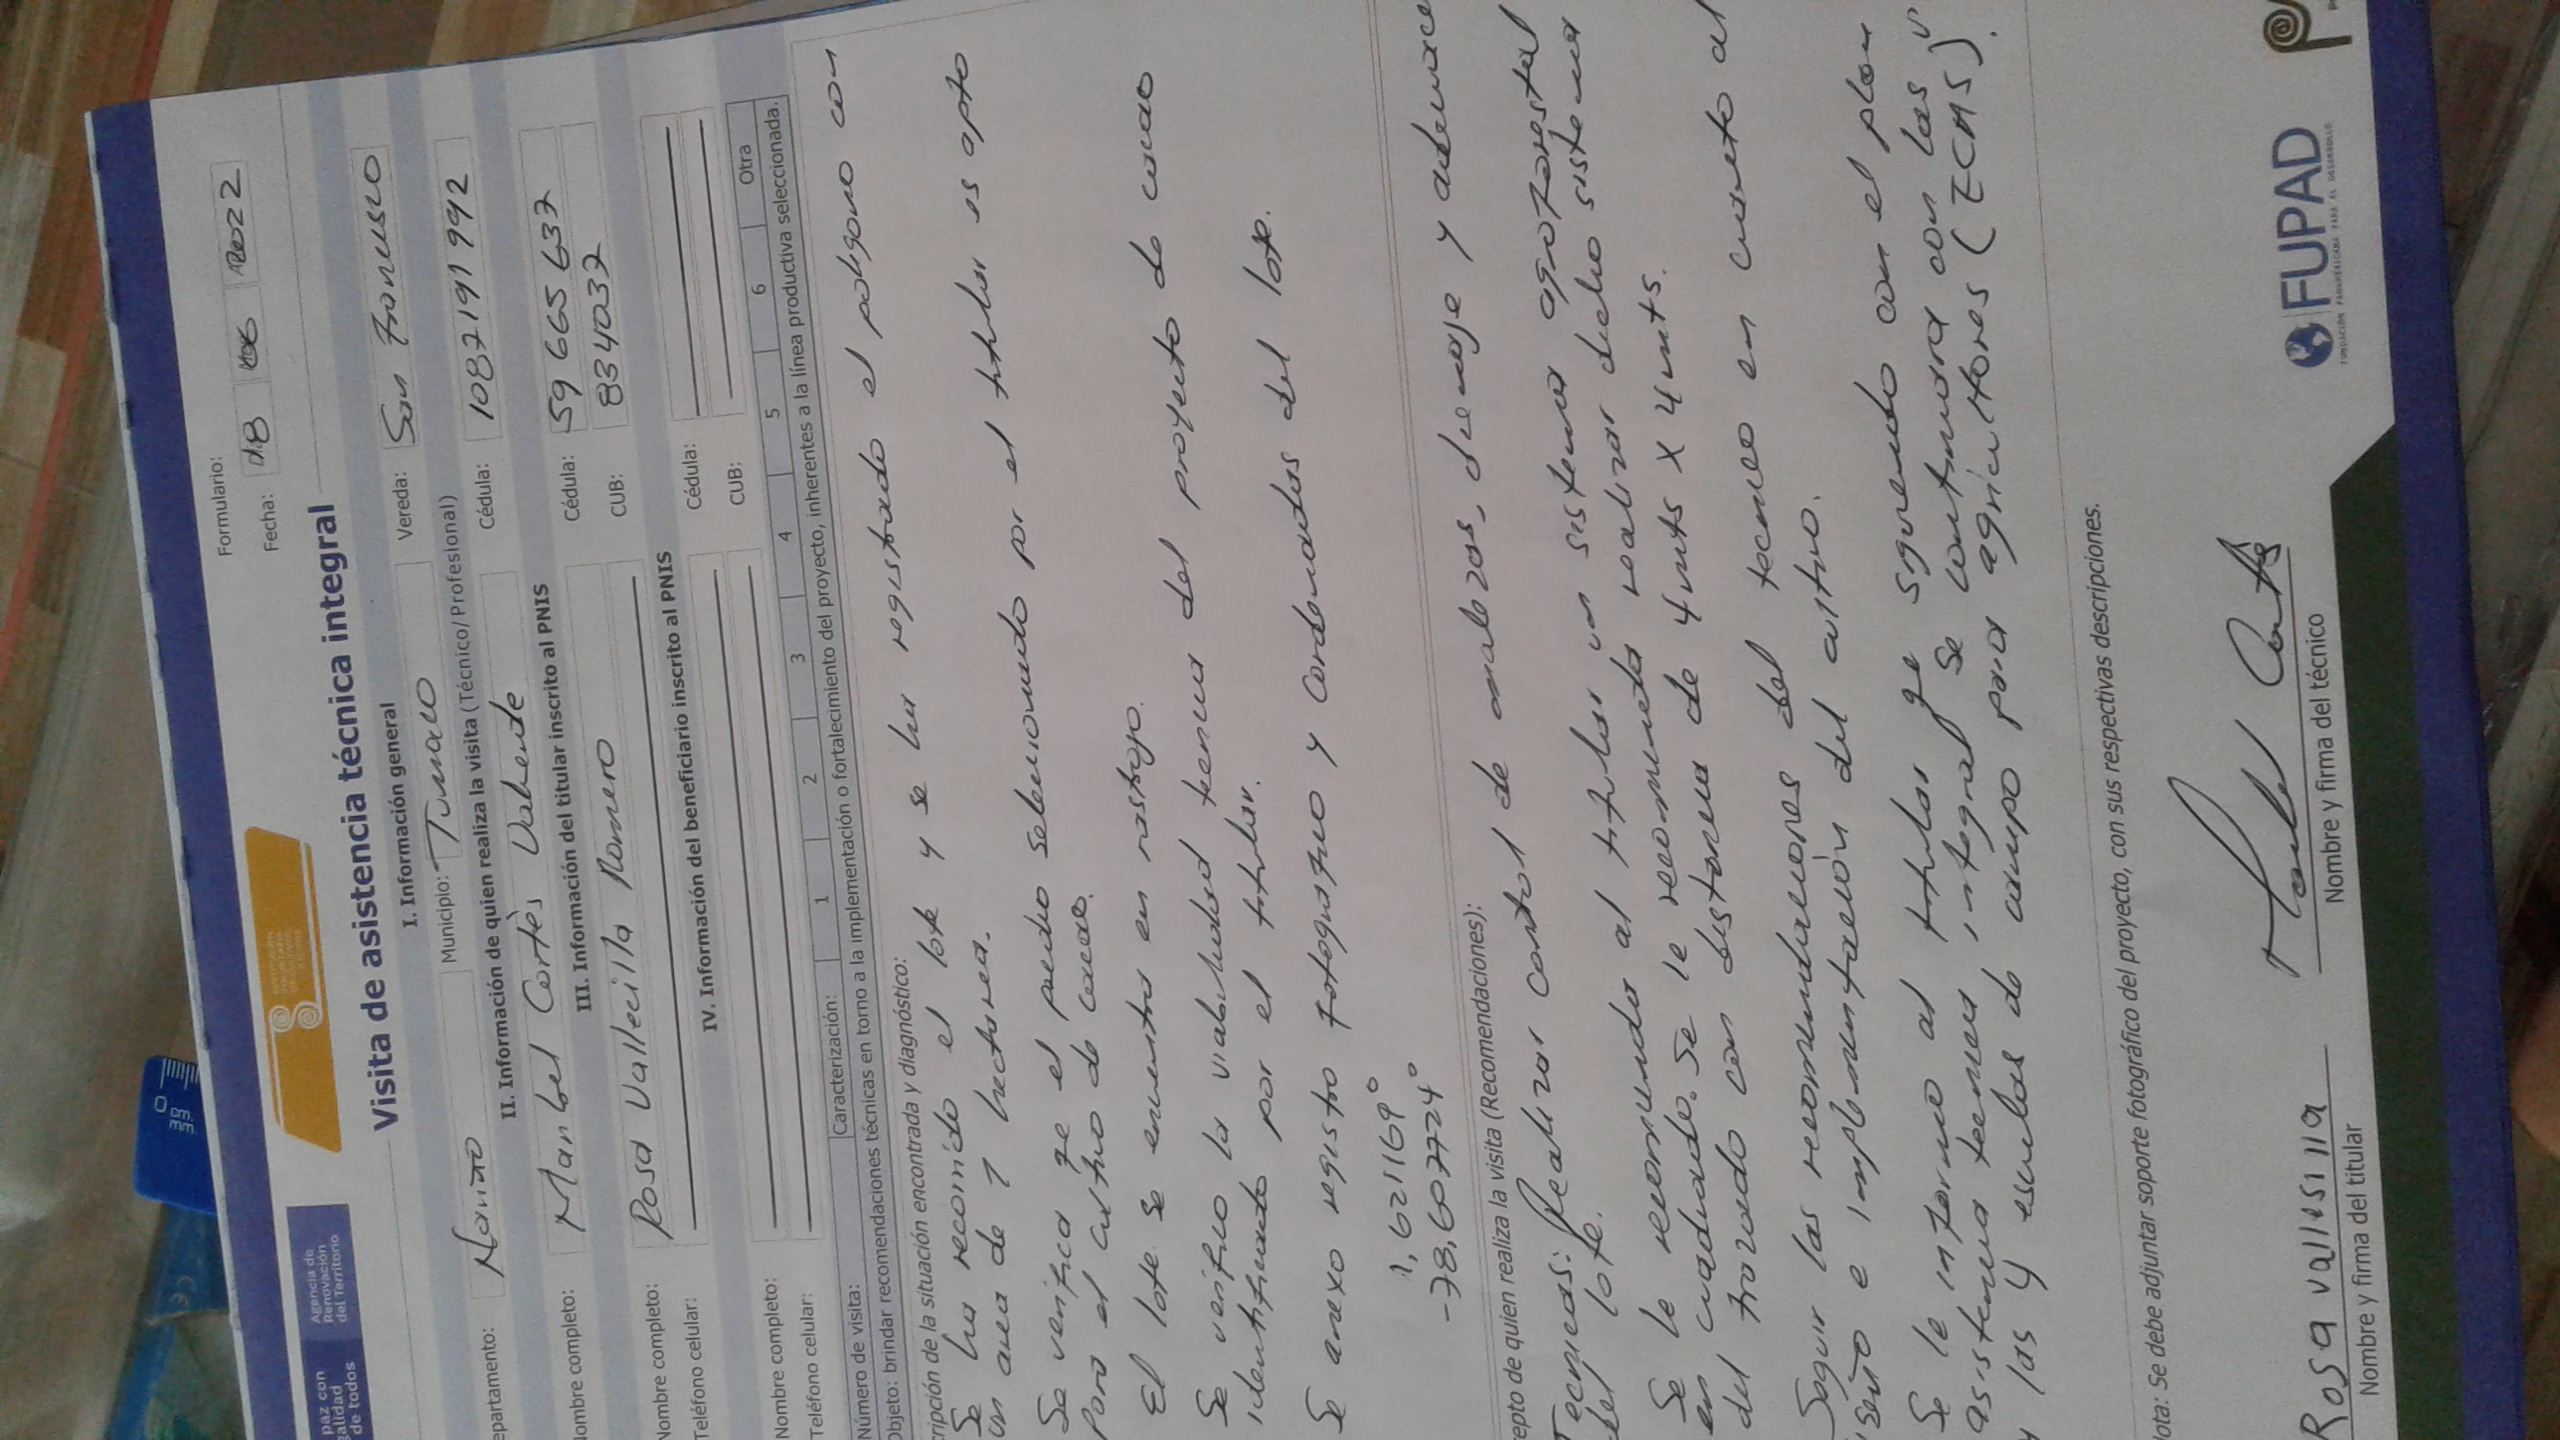 paz con
galidad
de todos
Agencia de
Renovación
del Territorio
Formulario:
Fecha: 18 06 2022
Visita de asistencia técnica integral
I. Información general
epartamento: Nariño Municipio: Tumaco Vereda: San Francisco
II. Información de quien realiza la visita (Técnico/ Profesional)
Nombre completo: Maribel Cortès Valiente Cédula: 1087191992
III. Información del titular inscrito al PNIS
Nombre completo: Rosa Vallecilla Romero Cédula: 59 665 637
Teléfono celular: CUB: 834037
IV. Información del beneficiario inscrito al PNIS
Nombre completo: Cédula:
Teléfono celular: CUB:
Número de visita: Caracterización: 1 2 3 4 5 6 Otra
Objeto: brindar recomendaciones técnicas en torno a la implementación o fortalecimiento del proyecto, inherentes a la línea productiva seleccionada.
cripción de la situación encontrada y diagnóstico:
Se ha recorrido el lote y se ha registrado el poligono con
un area de 1 hectarea.
Se verifica qe el predio seleccionado por el titular es apto
para el cultivo de cacao.
El lote se encuentra en rastrojo.
Se verifico la viabilidad tecnica del proyecto de cacao
identificado por el titular.
Se anexo registro fotografico y Cordenadas del lote.
1,621169°
-78,607724°
epto de quien realiza la visita (Recomendaciones):
Tecnicas: Realizar control de malezas, drenaje y
del lote.
Se le recomienda al titular un sistema agroforestal
en cuadrado. Se le recomienda realizar dicho sistema
del trazado con distancia de 4 mts x 4 mts.
Seguir las recomendaciones del tecnico en cuanto al
iseño e implementación del cultivo.
Se le informo al titular qe siguiendo con el plan
asistencia tecnica integral se continuara con las
y las y escuelas de campo para agricultores (ECAS).
Nota: Se debe adjuntar soporte fotográfico del proyecto, con sus respectivas descripciones.
Rosa vallesilla
Nombre y firma del titular
Nombre y firma del técnico
FUPAD
FUNDACIÓN PANAMERICANA PARA EL DESARROLLO